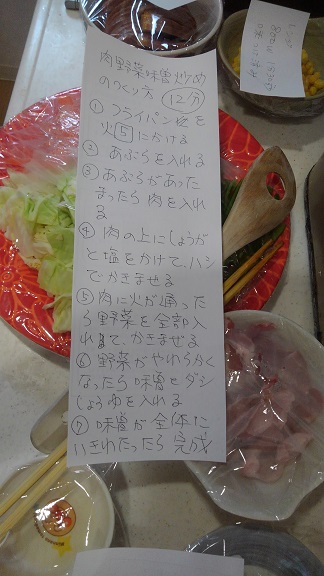 肉野菜味噌炒め
のつくり方 12分
① フライパン空を
火5にかける
② あぶらを入れる
③ あぶらがあった
まったら肉を入れ
る
④ 肉の上にしょうが
と塩をかけて、ハシ
でかきませる
⑤ 肉に火が通った
ら野菜を全部入
れて、かきませる
⑥ 野菜がやわらかく
なったら味噌とダシ
しょうゆを入れる
⑦ 味噌が全体に
いきわたったら完成